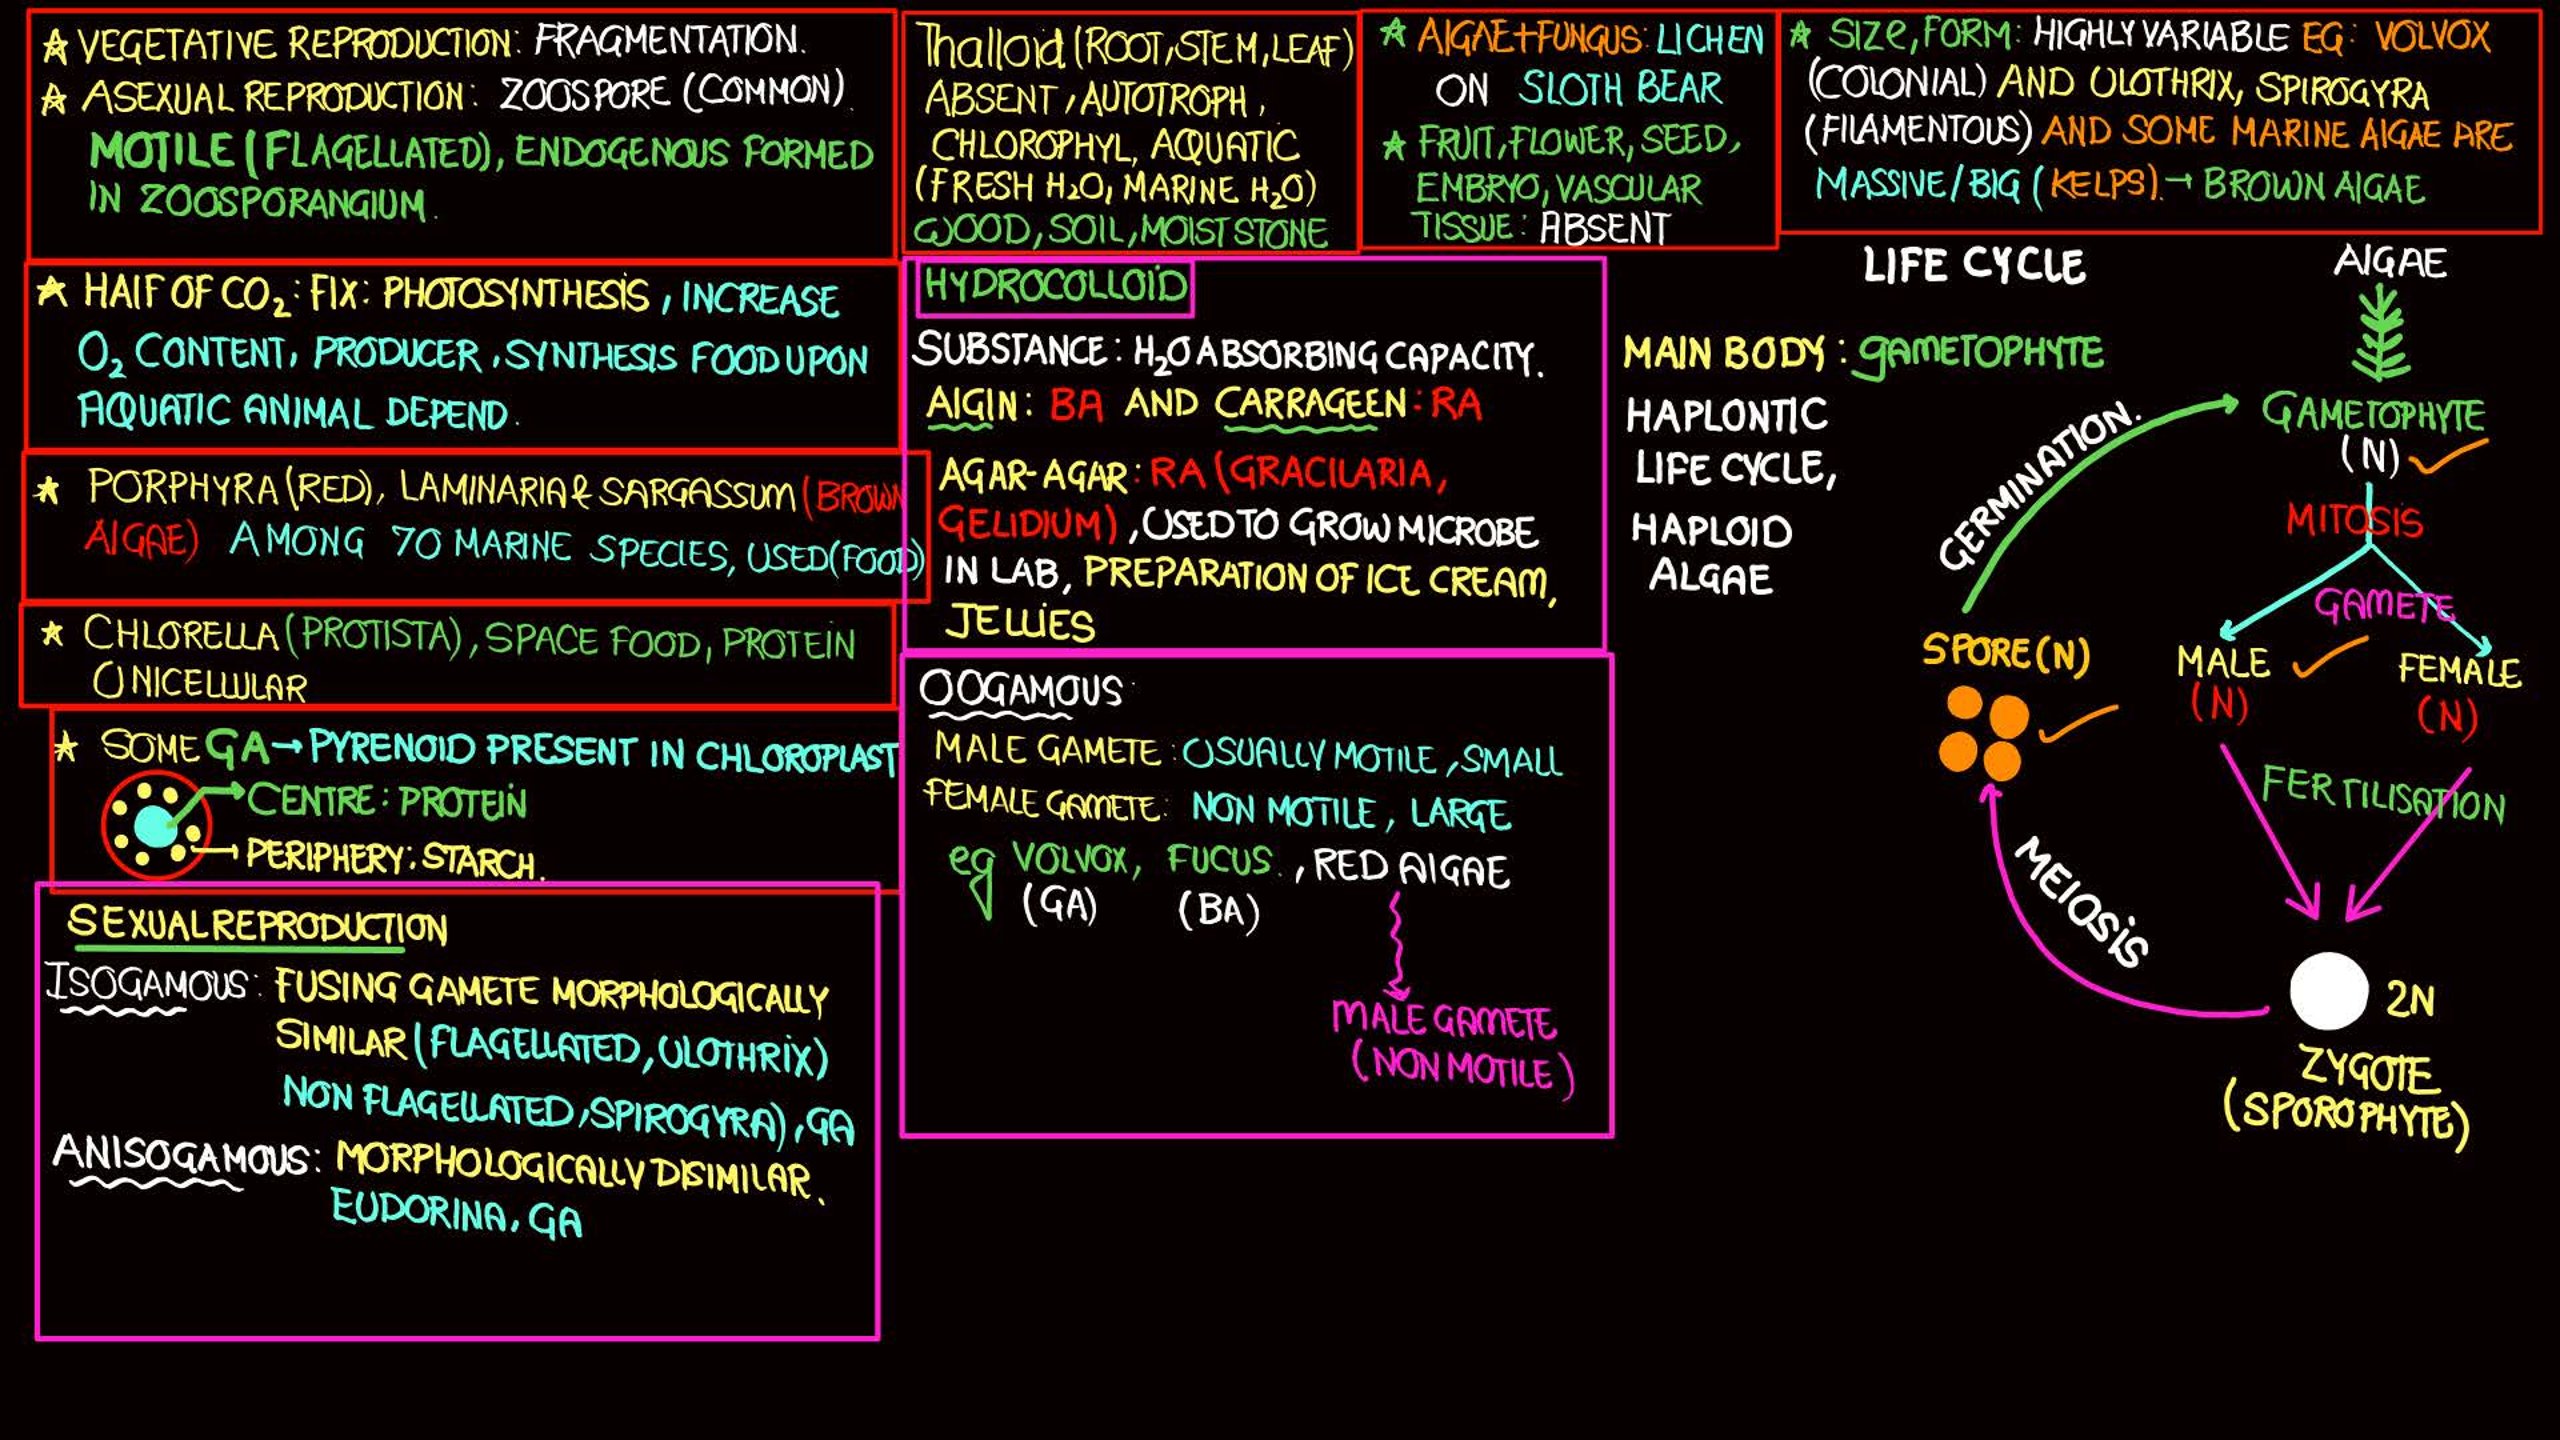 ☆ VEGETATIVE REPRODUCTION: FRAGMENTATION.
☆ ASEXUAL REPRODUCTION: ZOOSPORE (COMMON).
MOTILE (FLAGELLATED), ENDOGENOUS FORMED
IN ZOOSPORANGIUM.
☆ HALF OF CO₂: FIX: PHOTOSYNTHESIS, INCREASE
O₂ CONTENT, PRODUCER, SYNTHESIS FOOD UPON
AQUATIC ANIMAL DEPEND.
☆ PORPHYRA (RED), LAMINARIA & SARGASSUM (BROWN
ALGAE) AMONG 70 MARINE SPECIES, USED (FOOD)
☆ CHLORELLA (PROTISTA), SPACE FOOD, PROTEIN
UNICELLULAR
☆ SOME GA → PYRENOID PRESENT IN CHLOROPLAST
CENTRE: PROTEIN
PERIPHERY: STARCH.
SEXUAL REPRODUCTION
ISOGAMOUS: FUSING GAMETE MORPHOLOGICALLY
SIMILAR (FLAGELLATED, ULOTHRIX)
NON FLAGELLATED, SPIROGYRA), GA
ANISOGAMOUS: MORPHOLOGICALLY DISIMILAR.
EUDORINA, GA
Thalloid (ROOT, STEM, LEAF)
ABSENT, AUTOTROPH,
CHLOROPHYL, AQUATIC
(FRESH H₂O, MARINE H₂O)
WOOD, SOIL, MOIST STONE
HYDROCOLLOID
SUBSTANCE: H₂O ABSORBING CAPACITY.
ALGIN: BA AND CARRAGEEN: RA
AGAR-AGAR: RA (GRACILARIA,
GELIDIUM), USED TO GROW MICROBE
IN LAB, PREPARATION OF ICE CREAM,
JELLIES
OOGAMOUS:
MALE GAMETE: USUALLY MOTILE, SMALL
FEMALE GAMETE: NON MOTILE, LARGE
eg VOLVOX, FUCUS, RED ALGAE
(GA) (BA)
MALE GAMETE
(NON MOTILE)
☆ ALGAE+FUNGUS: LICHEN
ON SLOTH BEAR
☆ FRUIT, FLOWER, SEED,
EMBRYO, VASCULAR
TISSUE: ABSENT
☆ SIZE, FORM: HIGHLY VARIABLE EG: VOLVOX
(COLONIAL) AND ULOTHRIX, SPIROGYRA
(FILAMENTOUS) AND SOME MARINE ALGAE ARE
MASSIVE/BIG (KELPS). → BROWN ALGAE
LIFE CYCLE
MAIN BODY: GAMETOPHYTE
HAPLONTIC
LIFE CYCLE,
HAPLOID
ALGAE
ALGAE
GAMETOPHYTE
(N)
MITOSIS
GAMETE
MALE
(N)
FEMALE
(N)
FERTILISATION
2N
ZYGOTE
(SPOROPHYTE)
MEIOSIS
SPORE (N)
GERMINATION.